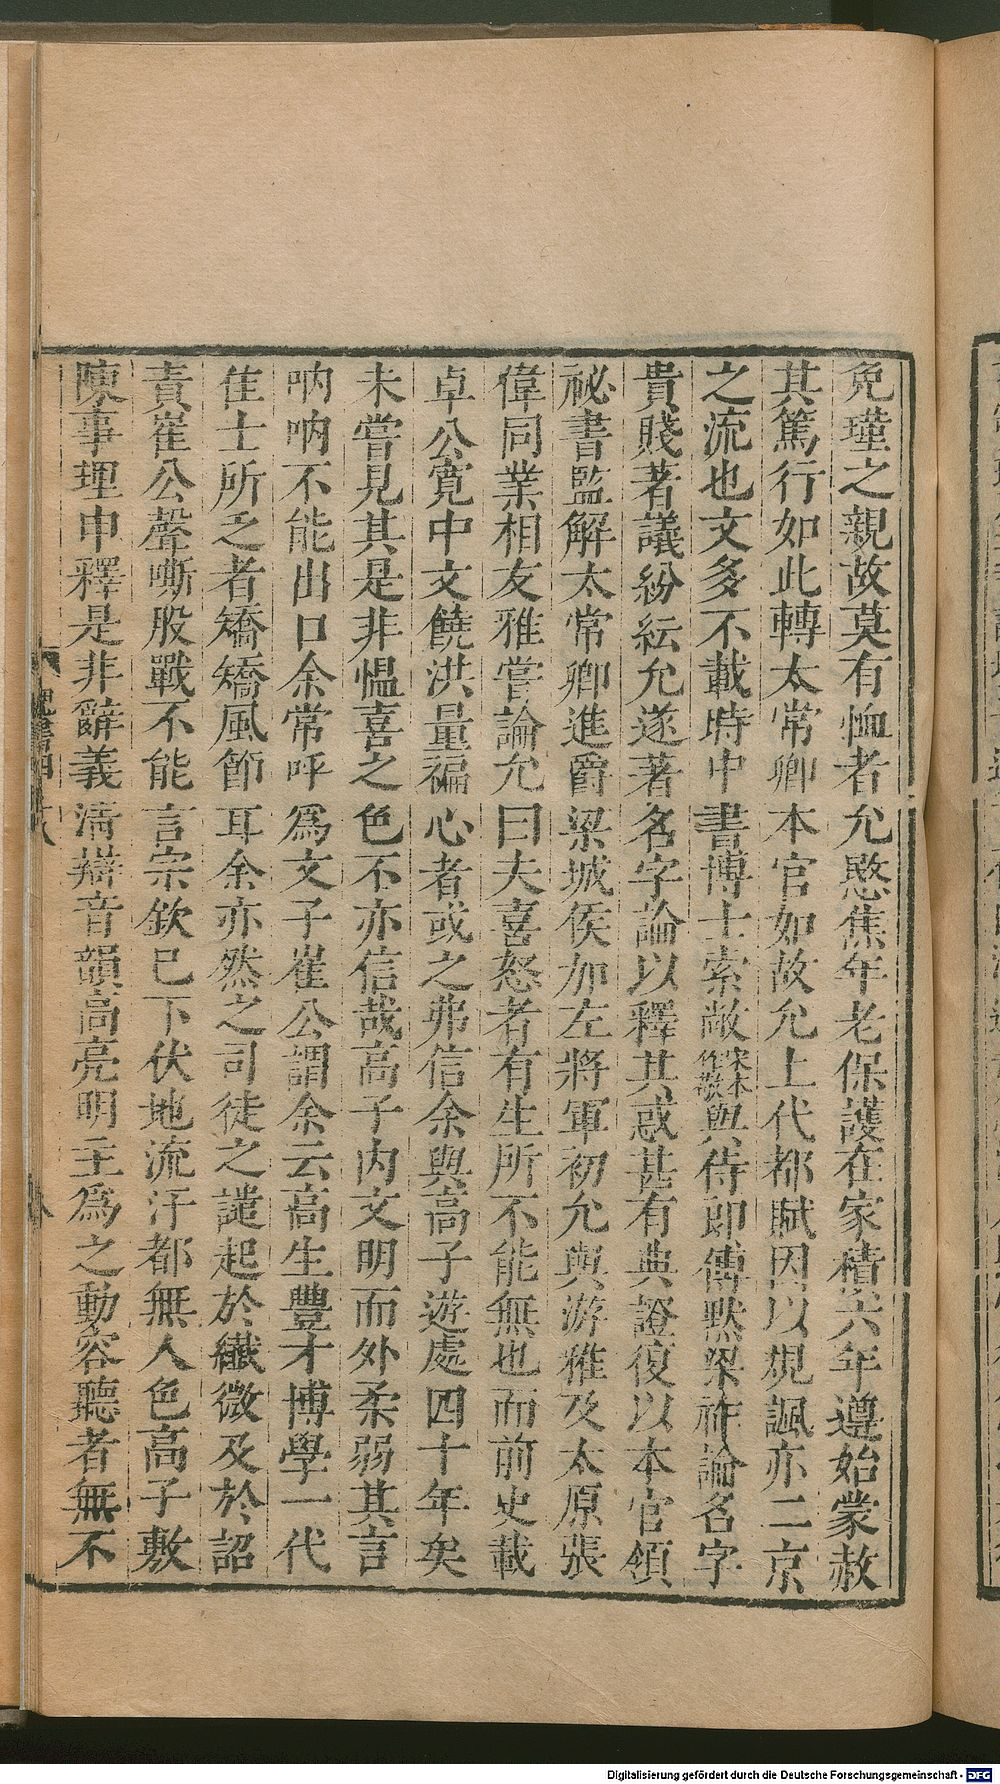 免瑾之親故莫有恤者允愍焦年老保護在家積六年遵始蒙赦
其篤行如此轉太常卿本官如故允上代都賦因以規諷亦二京
之流也文多不載時中書博士索敞宋本作敬與侍郎傅默梁祚論名字
貴賤著議紛紜允遂著名字論以釋其惑甚有典證復以本官領
祕書監解太常卿進爵梁城侯加左將軍初允與游雅及太原張
偉同業相友雅嘗論允曰夫喜怒者有生所不能無也而前史載
卓公寬中文饒洪量褊心者或之弗信余與高子遊處四十年矣
未嘗見其是非慍喜之色不亦信哉高子內文明而外柔弱其言
吶吶不能出口余常呼爲文子崔公謂余云高生豐才博學一代
佳士所乏者矯矯風節耳余亦然之司徒之譴起於纖微及於詔
責崔公聲嘶股戰不能言宗欽已下伏地流汗都無人色高子敷
陳事理申釋是非辭義淸辯音韻高亮明主爲之動容聽者無不
Digitalisierung gefördert durch die Deutsche Forschungsgemeinschaft - DFG